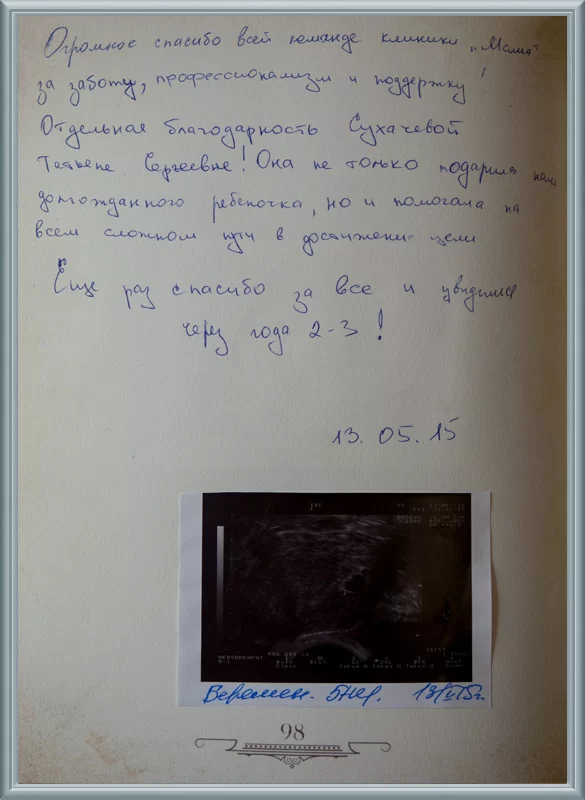 Огромное спасибо всей команде клиники „Мама"
за заботу, профессионализм и поддержку!
Отдельная благодарность Сухачевой
Татьяне Сергеевне! Она не только подарила нам
долгожданного ребеночка, но и помогала на
всем сложном пути в достижении цели.
Еще раз спасибо за все и увидимся
через года 2-3!
13.05.15
MEASUREMENT
Беремен. 5нед.
98